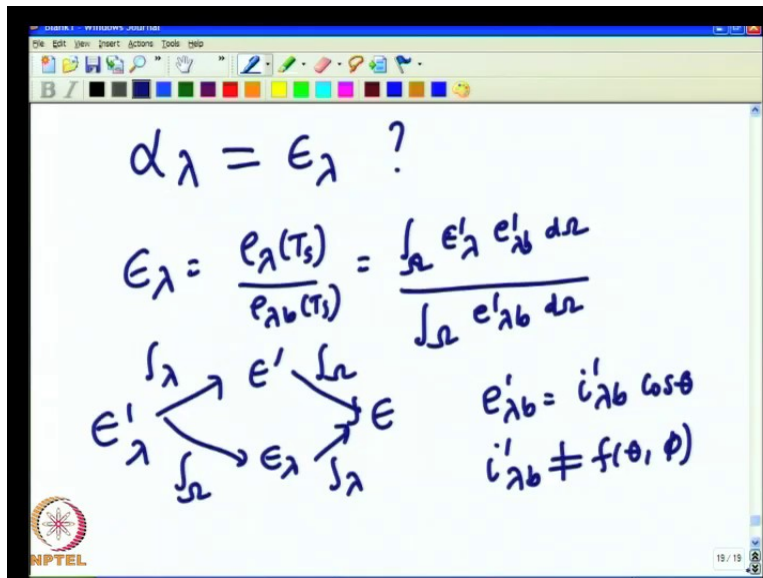 Blank1 - Windows Journal
File Edit View Insert Actions Tools Help
B I
αλ = ϵλ ?
ϵλ = eλ(Ts) / eλb(Ts) = ∫Ω ϵ'λ e'λb dΩ / ∫Ω e'λb dΩ
∫λ ϵ' ∫Ω
ϵ'λ ϵ
∫Ω ϵλ ∫λ
e'λb = i'λb cosθ
i'λb ≠ f(θ, φ)
NPTEL
19 / 19